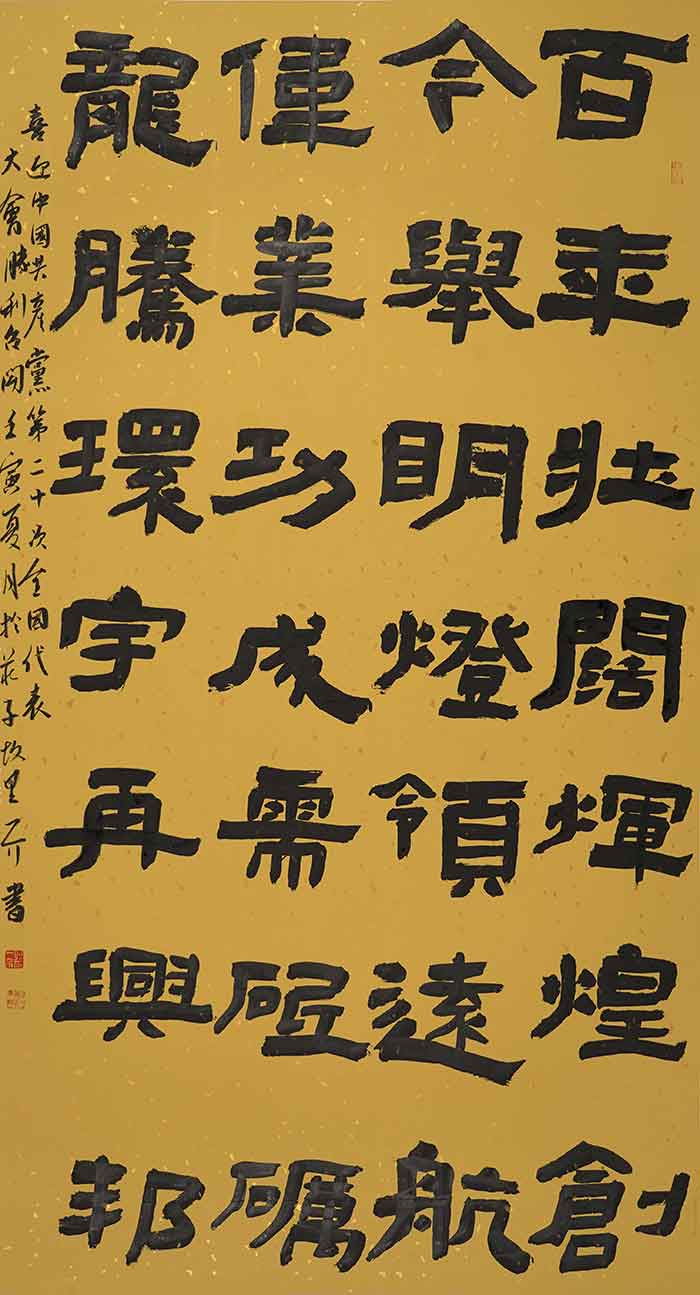 百年壯闊煇煌創
今舉眀燈領遠航
偉業功成需砥礪
龍騰環宇再興邦
喜迎中國共產黨第二十次全国代表
大會勝利召開壬寅夏月於莊子故里書